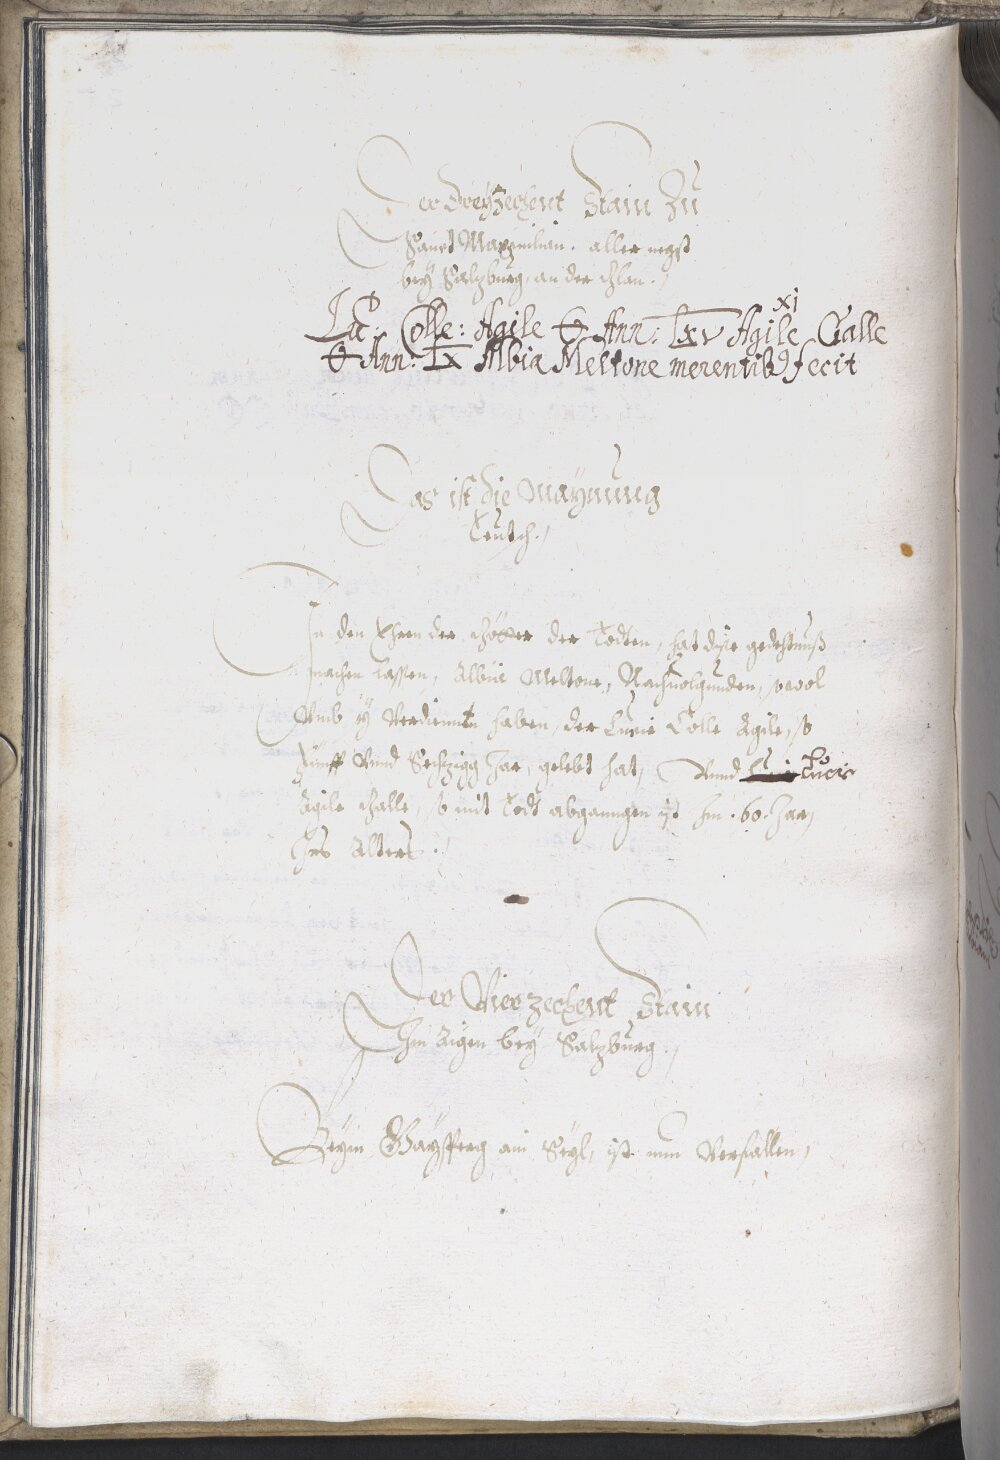 Der Dreyzechent Stain Zu
Sanct Maxmilian. aller negst
bey Salzburg, an der
Lu: Colle: Agile & Ann: lxv Agile xi Galle
& Ann: Lx Albia Meltone merentib9 fecit
Das ist die Maynung
Teutsch./
In den Ehren der Götter der Todten, hat dise gedechtnuß
machen lassen, Albia Meltone, Nachuolgunden, so wol
Umb sy Verdiennt haben, der Lucie Colle Agile, so
Fünff Unnd Sechzigg Jar, gelebt hat, Unnd Lucie
Agile Galle, so mit Todt abganngen ist Im .60. Jar,
Irs Alters ./
Der Vierzechent Stain
Im Aigen bey Salzburg./
Beym Gaysperg am, ist nun Verfallen,